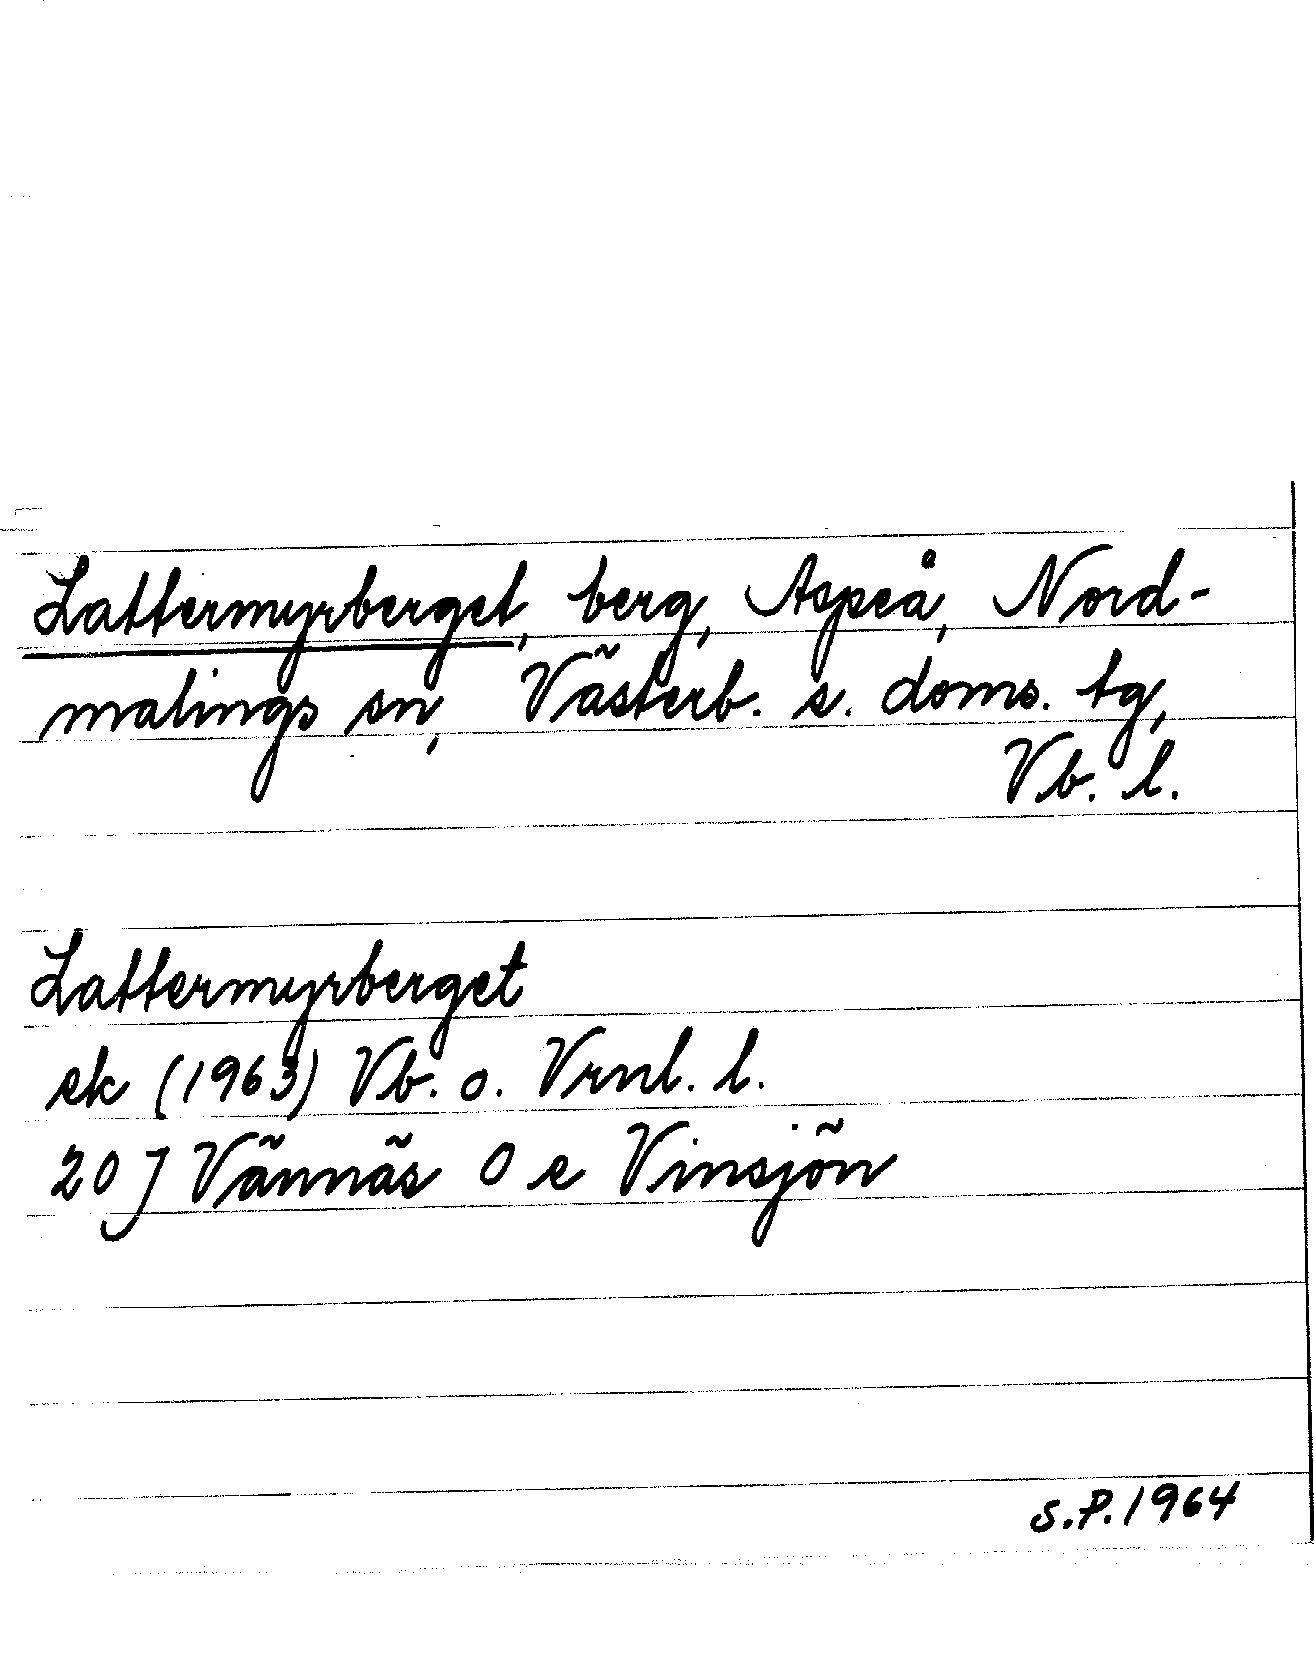 Lattermyrberget, berg, Aspeå, Nord-
malings sn, Västerb. s. doms. tg,
Vb. l.
Lattermyrberget
ek (1963) Vb. o. Vrnl. l.
20 J Vännäs O e Vinsjön
S.P. 1964